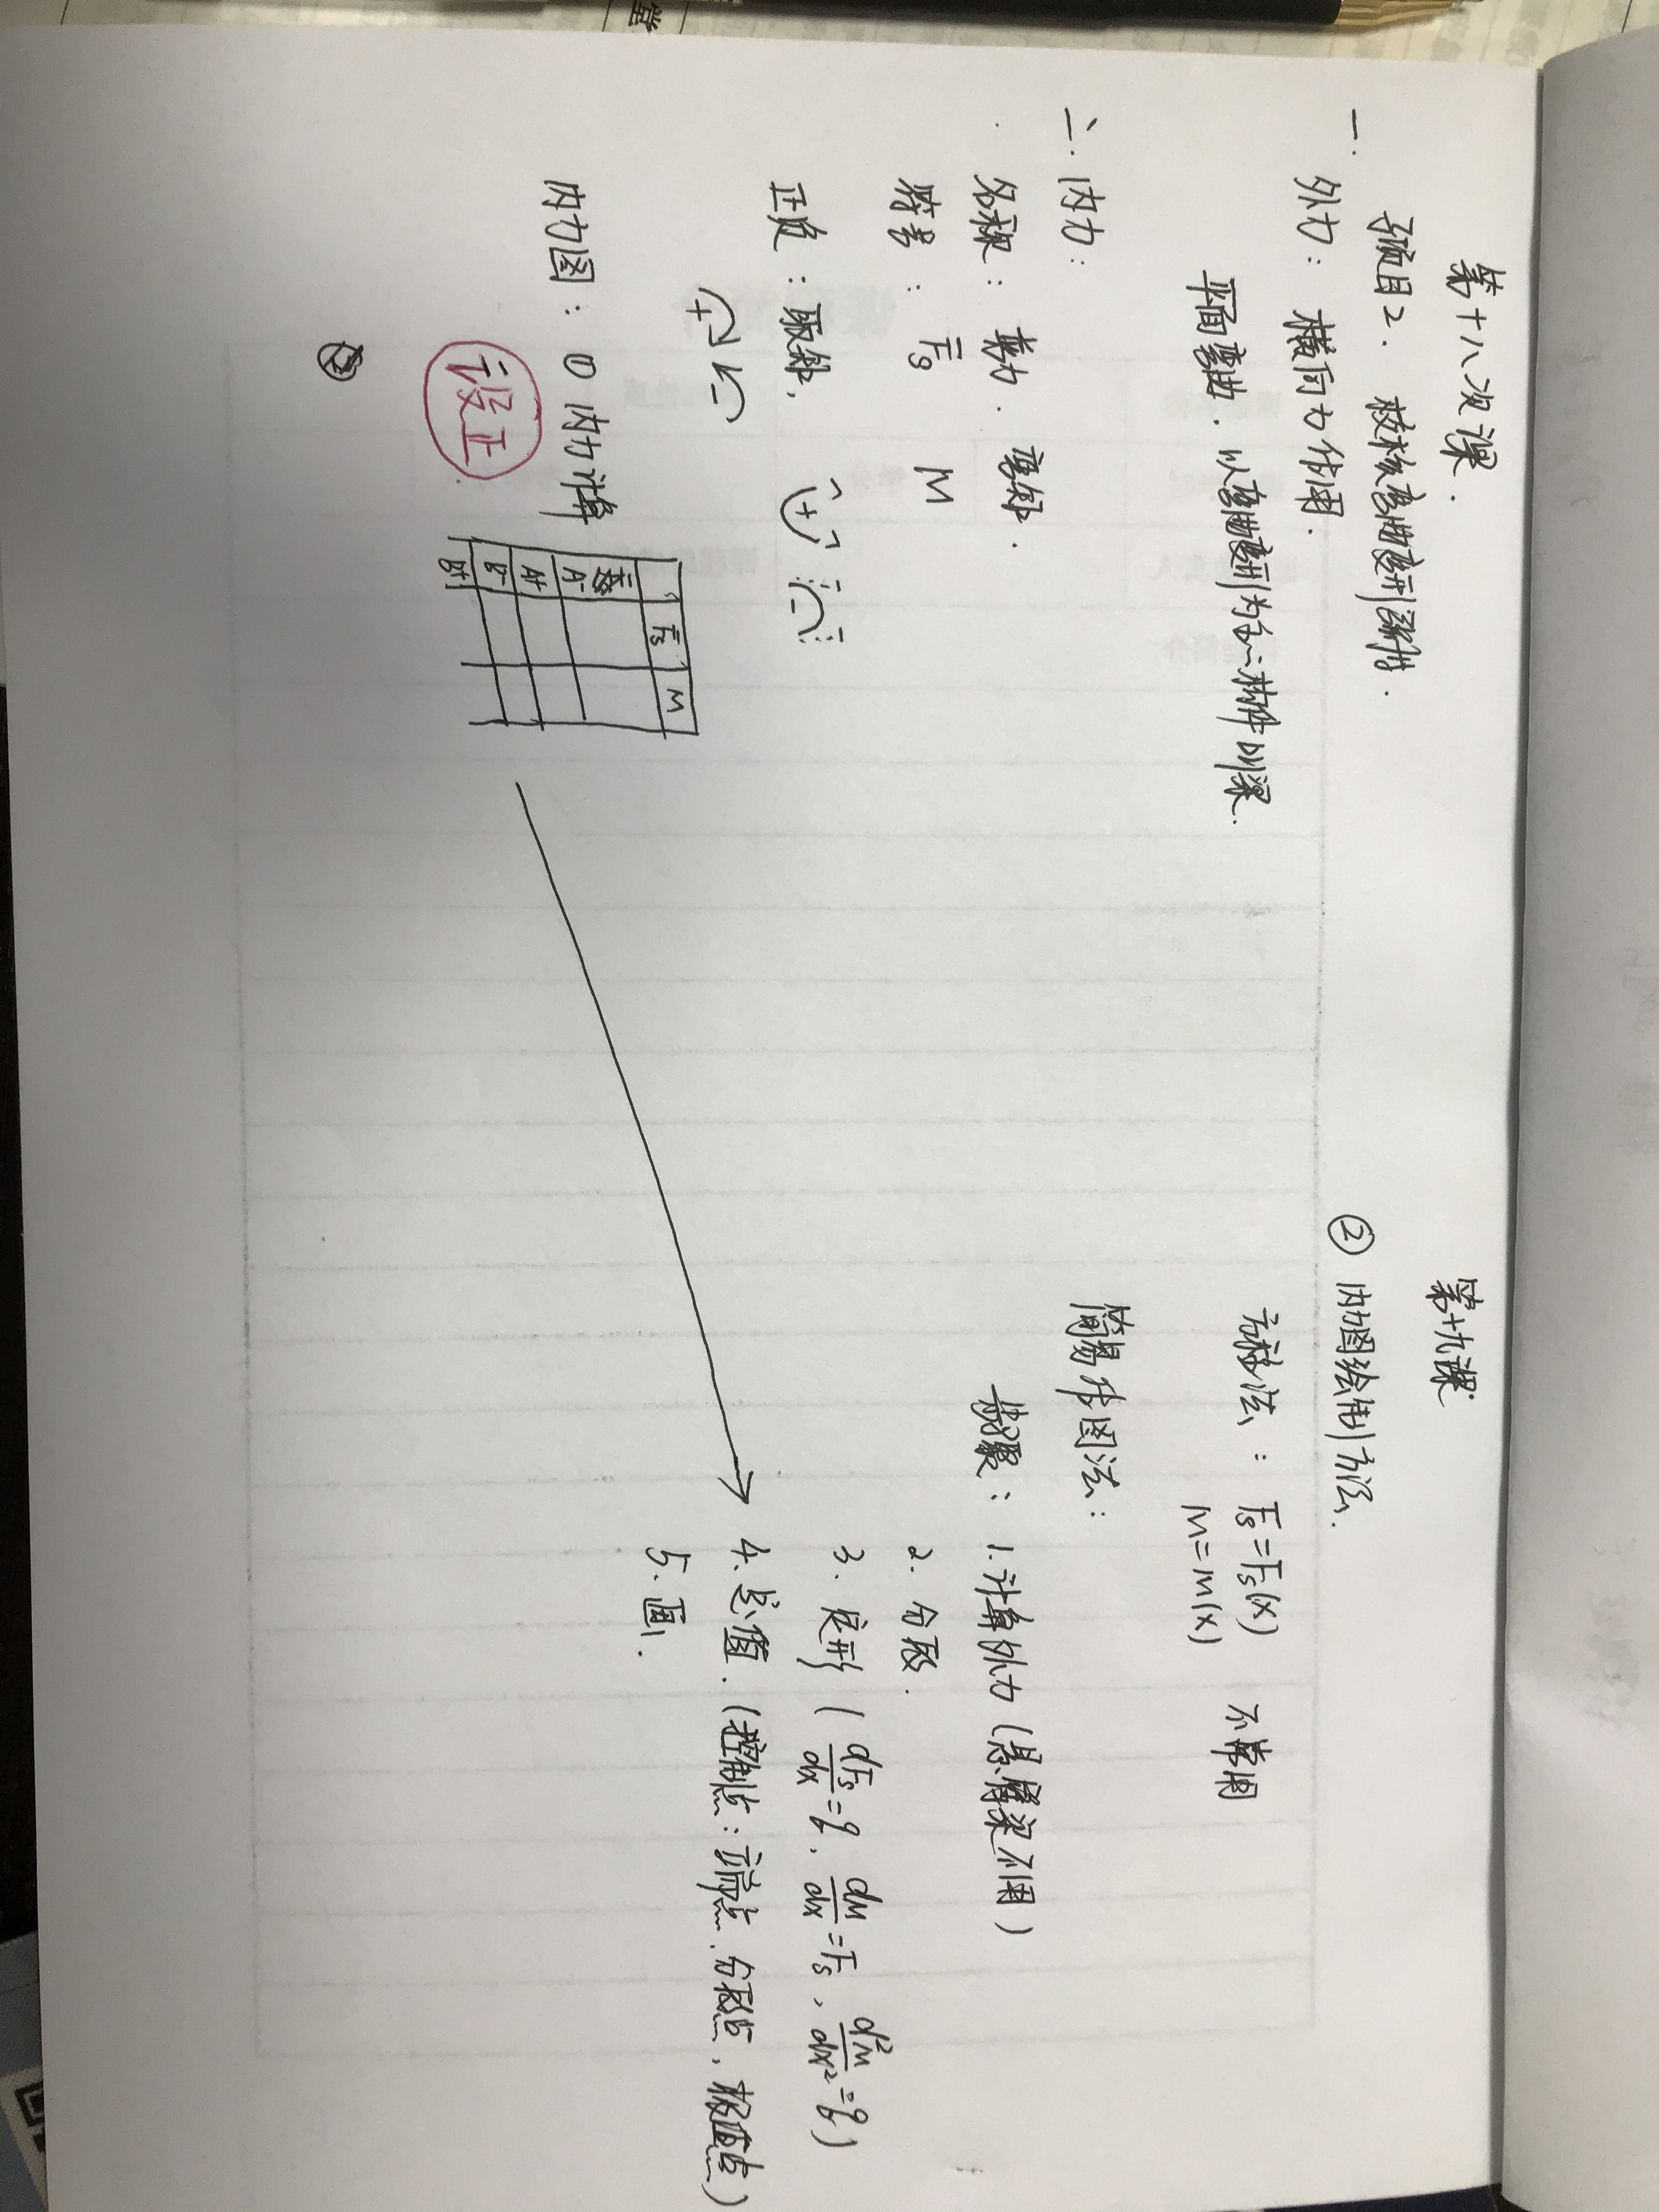 第十八次课.
子项目2. 校核弯曲变形构件.
一. 外力: 横向力作用.
平面弯曲. 以弯曲变形为主的构件叫梁.
二. 内力:
名称: 剪力. 弯矩.
符号: Fs M
正负:
(+) (-)
(+) (-)
内力图: ① 内力计算
设正
Fs M
A-
A+
B-
B+
②
第十九课
② 内力图绘制方法.
方程法: Fs=Fs(x) 不常用
M=M(x)
简易作图法:
步骤: 1. 计算外力(悬臂梁不用)
2. 分段.
3. 定形 (dFs/dx=q, dM/dx=Fs, d²M/dx²=q)
4. 定值. (控制点: 端点, 分段点, 极值点)
5. 画.